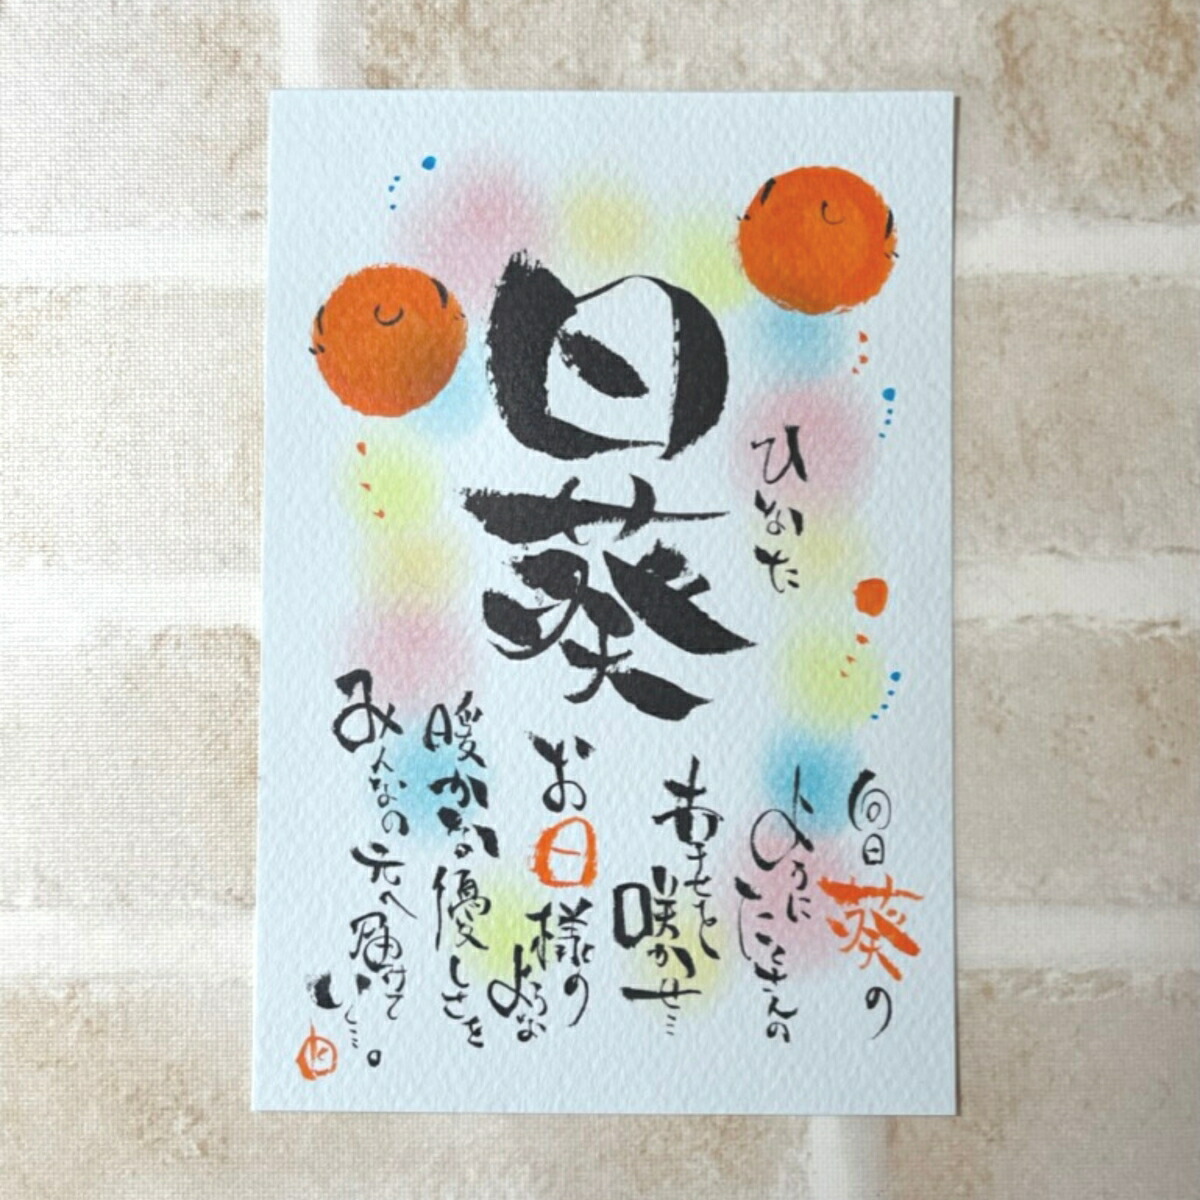 日葵
ひなた
向日葵の
ように
たくさんの
幸せを
咲かせ…
お日様の
ような
暖かな優しさを
みんなの元へ届けて